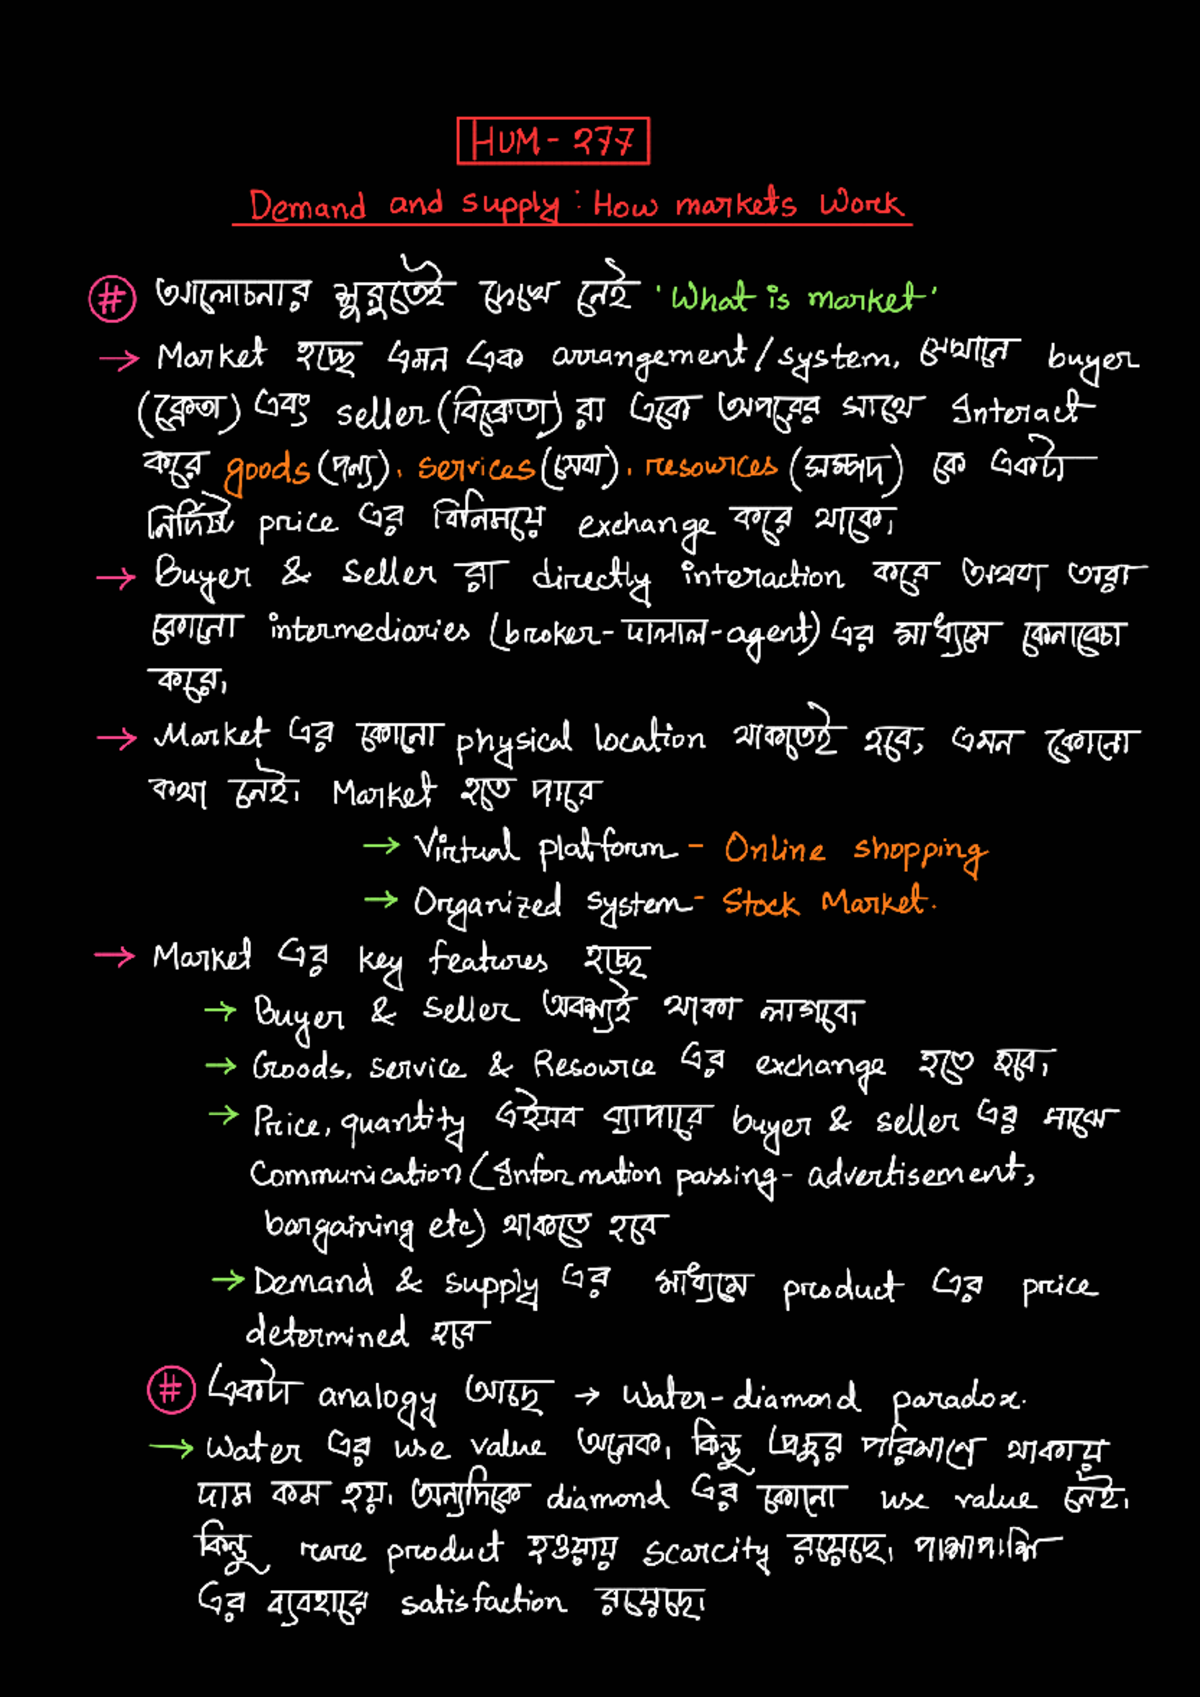 HUM-277
Demand and supply : How markets Work
# আলোচনার শুরুতেই দেখে নেই 'What is market'
→ Market হচ্ছে এমন এক arrangement/system, যেখানে buyer
(ক্রেতা) এবং seller (বিক্রেতা) রা একে অপরের সাথে Interact
করে goods (পন্য), services (সেবা), resources (সম্পদ) কে একটা
নির্দিষ্ট price এর বিনিময়ে exchange করে থাকে।
→ Buyer & Seller রা directly interaction করবে অথবা তারা
কোনো intermediaries (broker-দালাল-agent) এর মাধ্যমে কেনাবেচা
করে।
→ Market এর কোনো physical location থাকতেই হবে, এমন কোনো
কথা নেই। Market হতে পারে
→ Virtual platform - Online shopping
→ Organized system - Stock Market.
→ Market এর key features হচ্ছে
→ Buyer & Seller অবশ্যই থাকা লাগবে।
→ Goods, service & Resource এর exchange হতে হবে।
→ Price, quantity এইসব ব্যাপারে buyer & seller এর মাঝে
Communication (Information passing - advertisement,
bargaining etc) থাকতে হবে
→ Demand & supply এর মাধ্যমে product এর price
determined হবে
# একটা analogy আছে → Water-diamond paradox.
→ Water এর use value অনেক, কিন্তু প্রচুর পরিমাণে থাকায়
দাম কম হয়। অন্যদিকে diamond এর কোনো use value নেই।
কিন্তু rare product হওয়ায় scarcity রয়েছে। পাশাপাশি
এর ব্যবহারে satisfaction রয়েছে।